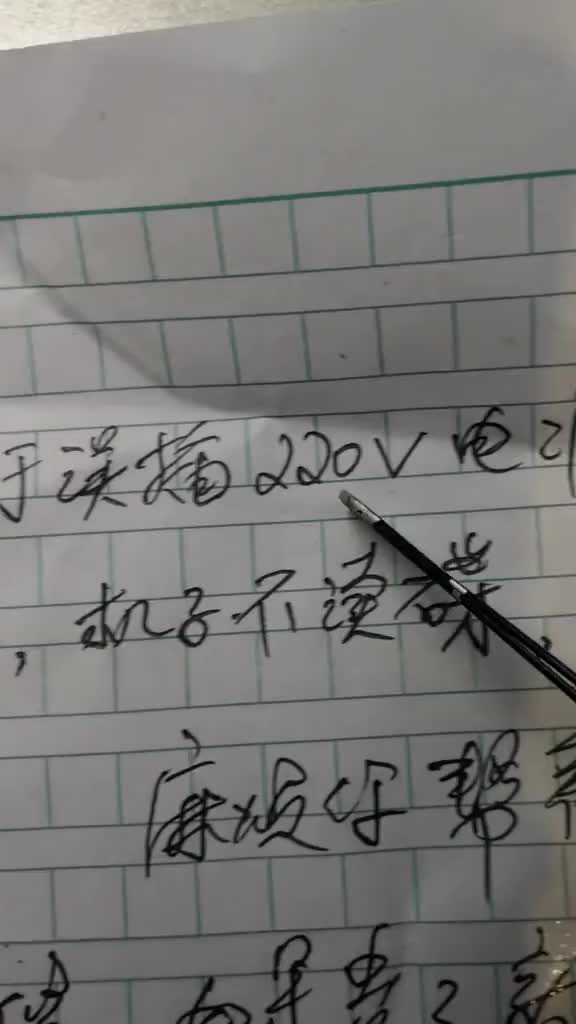 于误插220V电
，机子不读碟，
麻烦你帮
如果